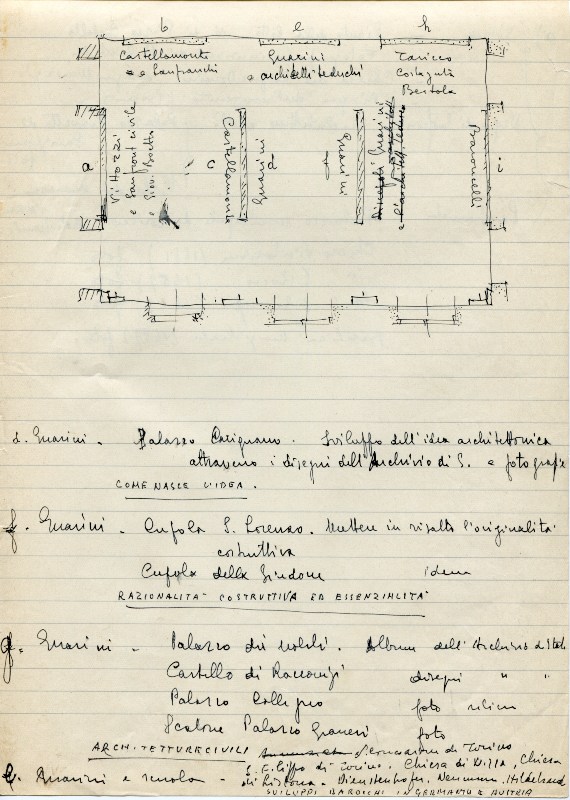 b e h
Castellamonte Guarini Taricco
e Lanfranchi e architetti tedeschi Costaguta
Bertola
a
Vittozzi
e Sanfront civile
e Giov. Boetto
c
Castellamonte
Guarini
d
Guarini
Discepoli Guarini
Baroncelli
i
d. Guarini - Palazzo Carignano. Sviluppo dell'idea architettonica
attraverso i disegni dell'Archivio di S. e fotografie
COME NASCE L'IDEA.
f. Guarini - Cupola S. Lorenzo. Mettere in risalto l'originalità
costruttiva
Cupola della Sindone idem
RAZIONALITA' COSTRUTTIVA ED ESSENZIALITA'
g. Guarini - Palazzo dei nobili. Album dell'Archivio di Stato
Castello di Racconigi disegni " "
Palazzo Collegno foto rilievi
Scalone Palazzo Graneri foto
ARCHITETTURE CIVILI di Torino
Guarini e scuola - S. Filippo di Torino, Chiesa di Nizza, Chiesa
di Lisbona. Dientzenhofer, Neumann, Hildebrand
SVILUPPI BAROCCHI IN GERMANIA E AUSTRIA